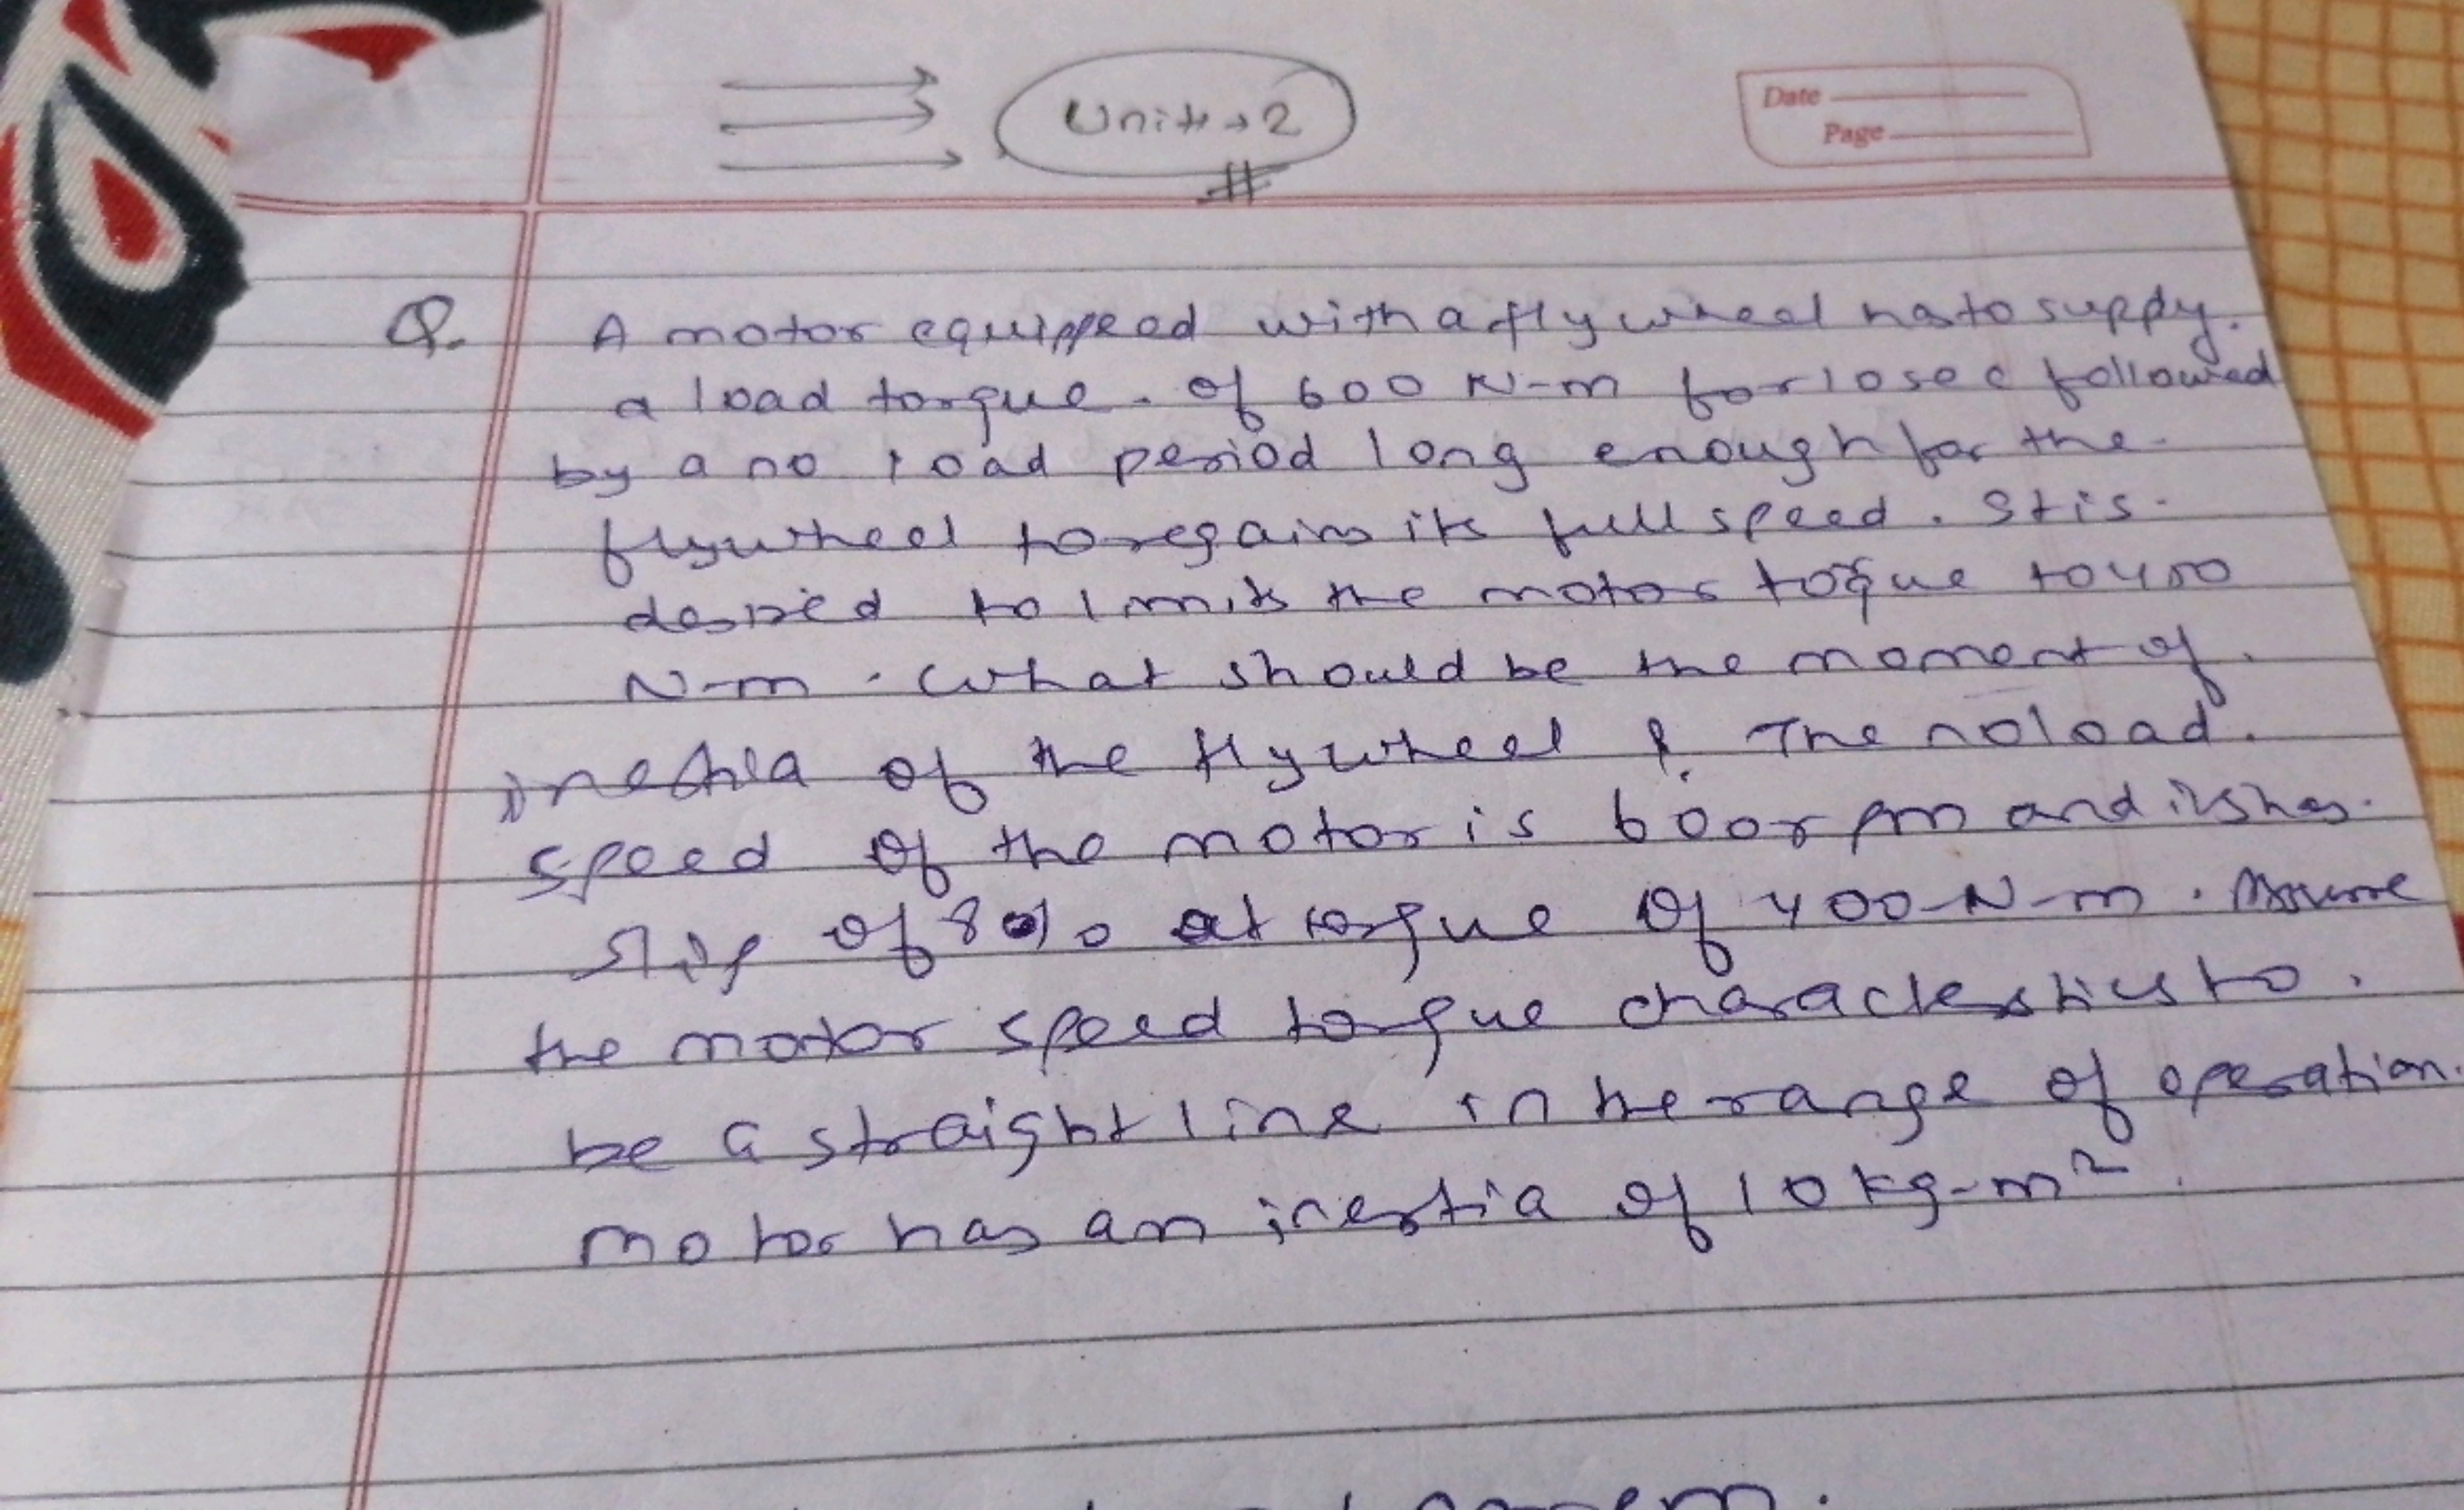 Unit → 2
Date
Page
Q. A motor equipped with a flywheel has to supply.
a load torque. of 600 N-m for 10 sec followed
by a no load period long enough for the
flywheel to regain its full speed. It is.
desired to limits the motor toque to 450
N-m. What should be the moment of.
inertia of the flywheel ? The noload.
speed of the motor is 600rpm and its has.
slip of 8% at torque of 400-N-m. Assume
the motor speed torque characterstics to.
be a straight line in the range of operation.
motor has an inertia of 10 kg-m²